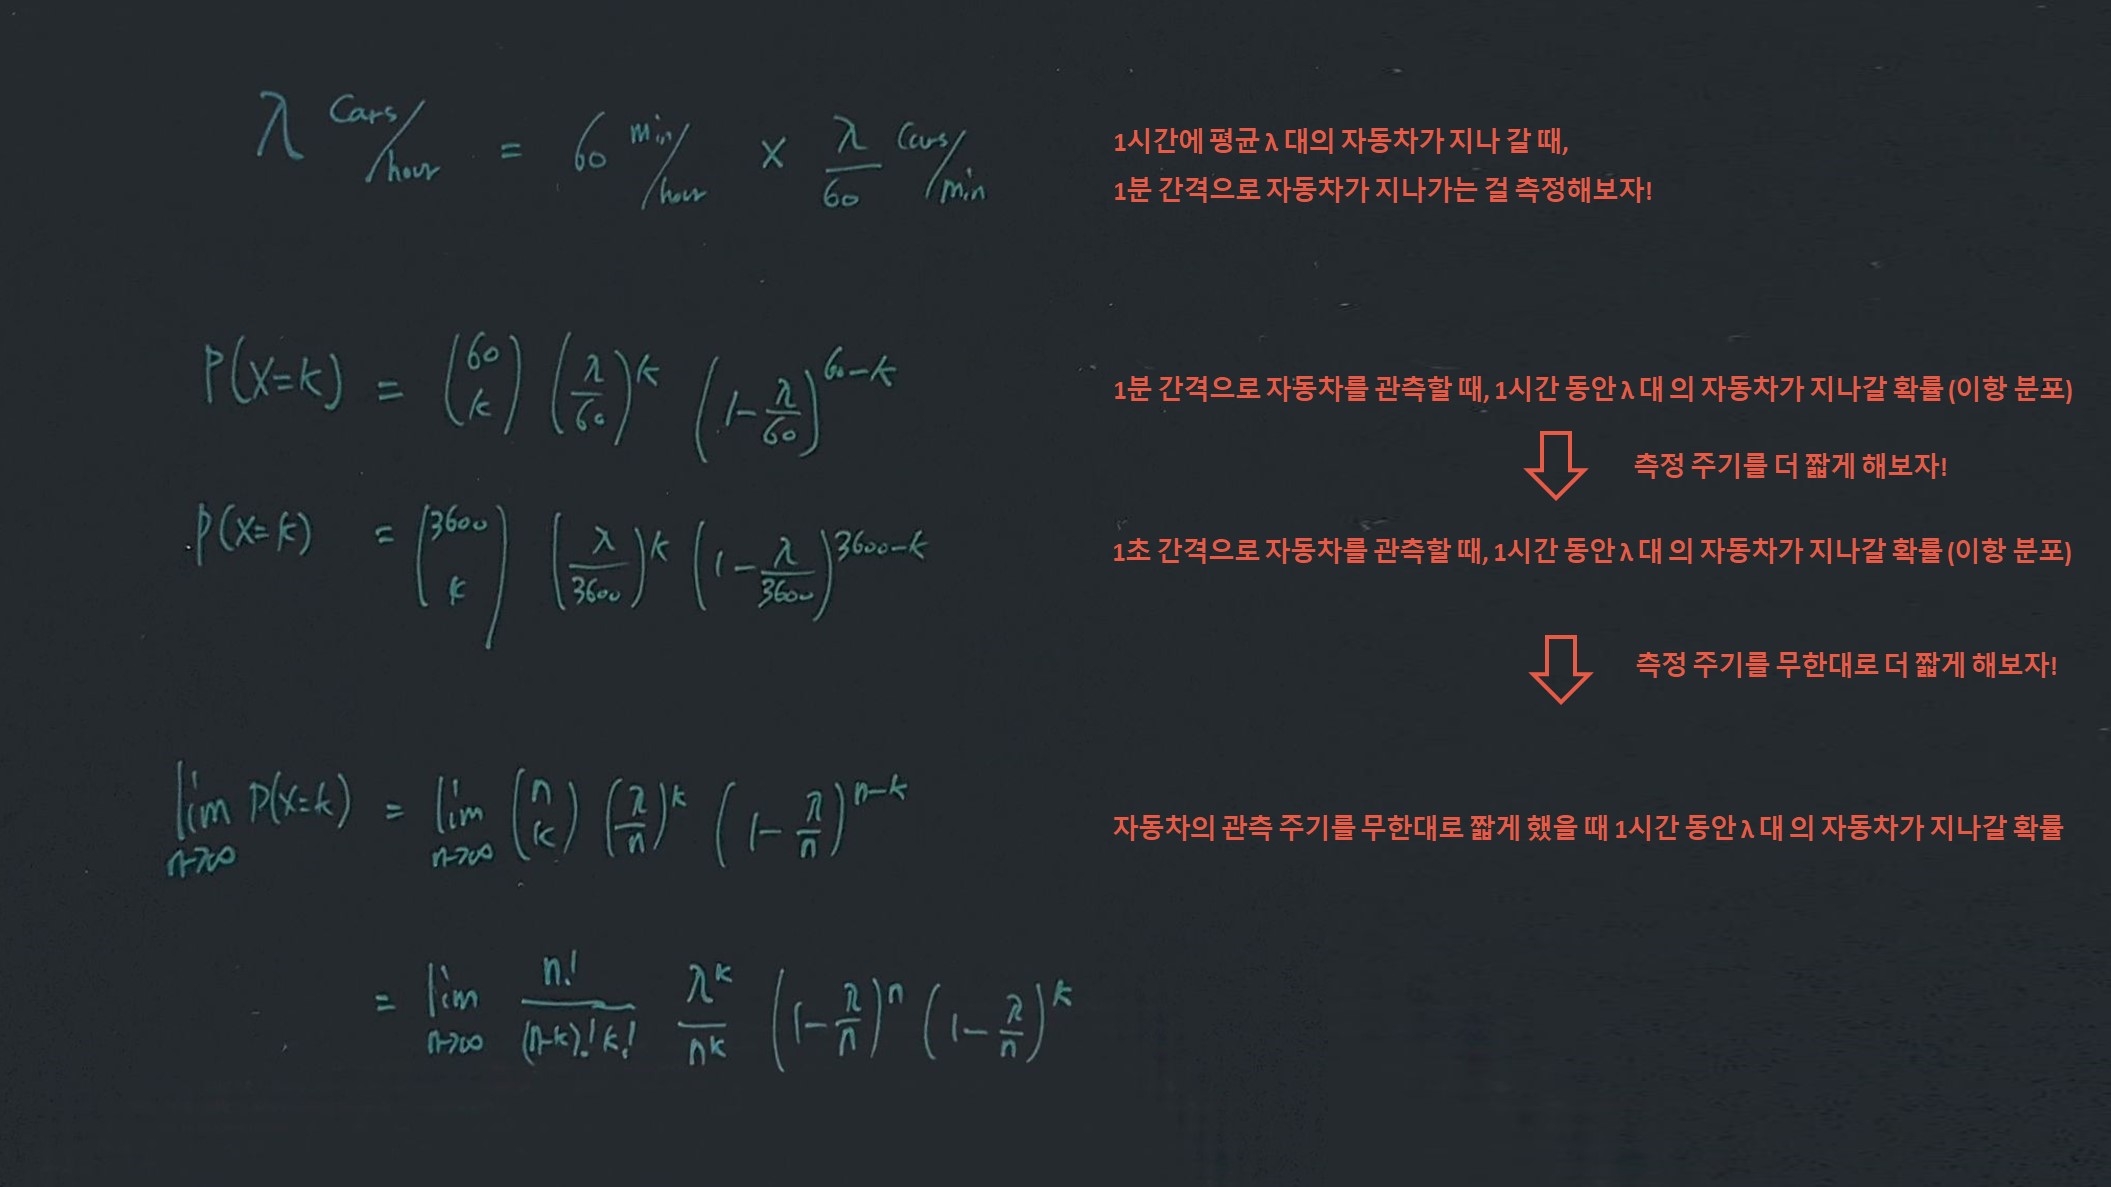 λ cars/hour = 60 min/hour × λ/60 cars/min
1시간에 평균 λ 대의 자동차가 지나 갈 때,
1분 간격으로 자동차가 지나가는 걸 측정해보자!
P(X=k) = (60 k) (λ/60)^k (1-λ/60)^60-k
1분 간격으로 자동차를 관측할 때, 1시간 동안 λ 대 의 자동차가 지나갈 확률 (이항 분포)
측정 주기를 더 짧게 해보자!
P(X=k) = (3600 k) (λ/3600)^k (1-λ/3600)^3600-k
1초 간격으로 자동차를 관측할 때, 1시간 동안 λ 대 의 자동차가 지나갈 확률 (이항 분포)
측정 주기를 무한대로 더 짧게 해보자!
lim n→∞ P(X=k) = lim n→∞ (n k) (λ/n)^k (1-λ/n)^n-k
자동차의 관측 주기를 무한대로 짧게 했을 때 1시간 동안 λ 대 의 자동차가 지나갈 확률
= lim n→∞ n!/(n-k)!k! λ^k/n^k (1-λ/n)^n (1-λ/n)^k